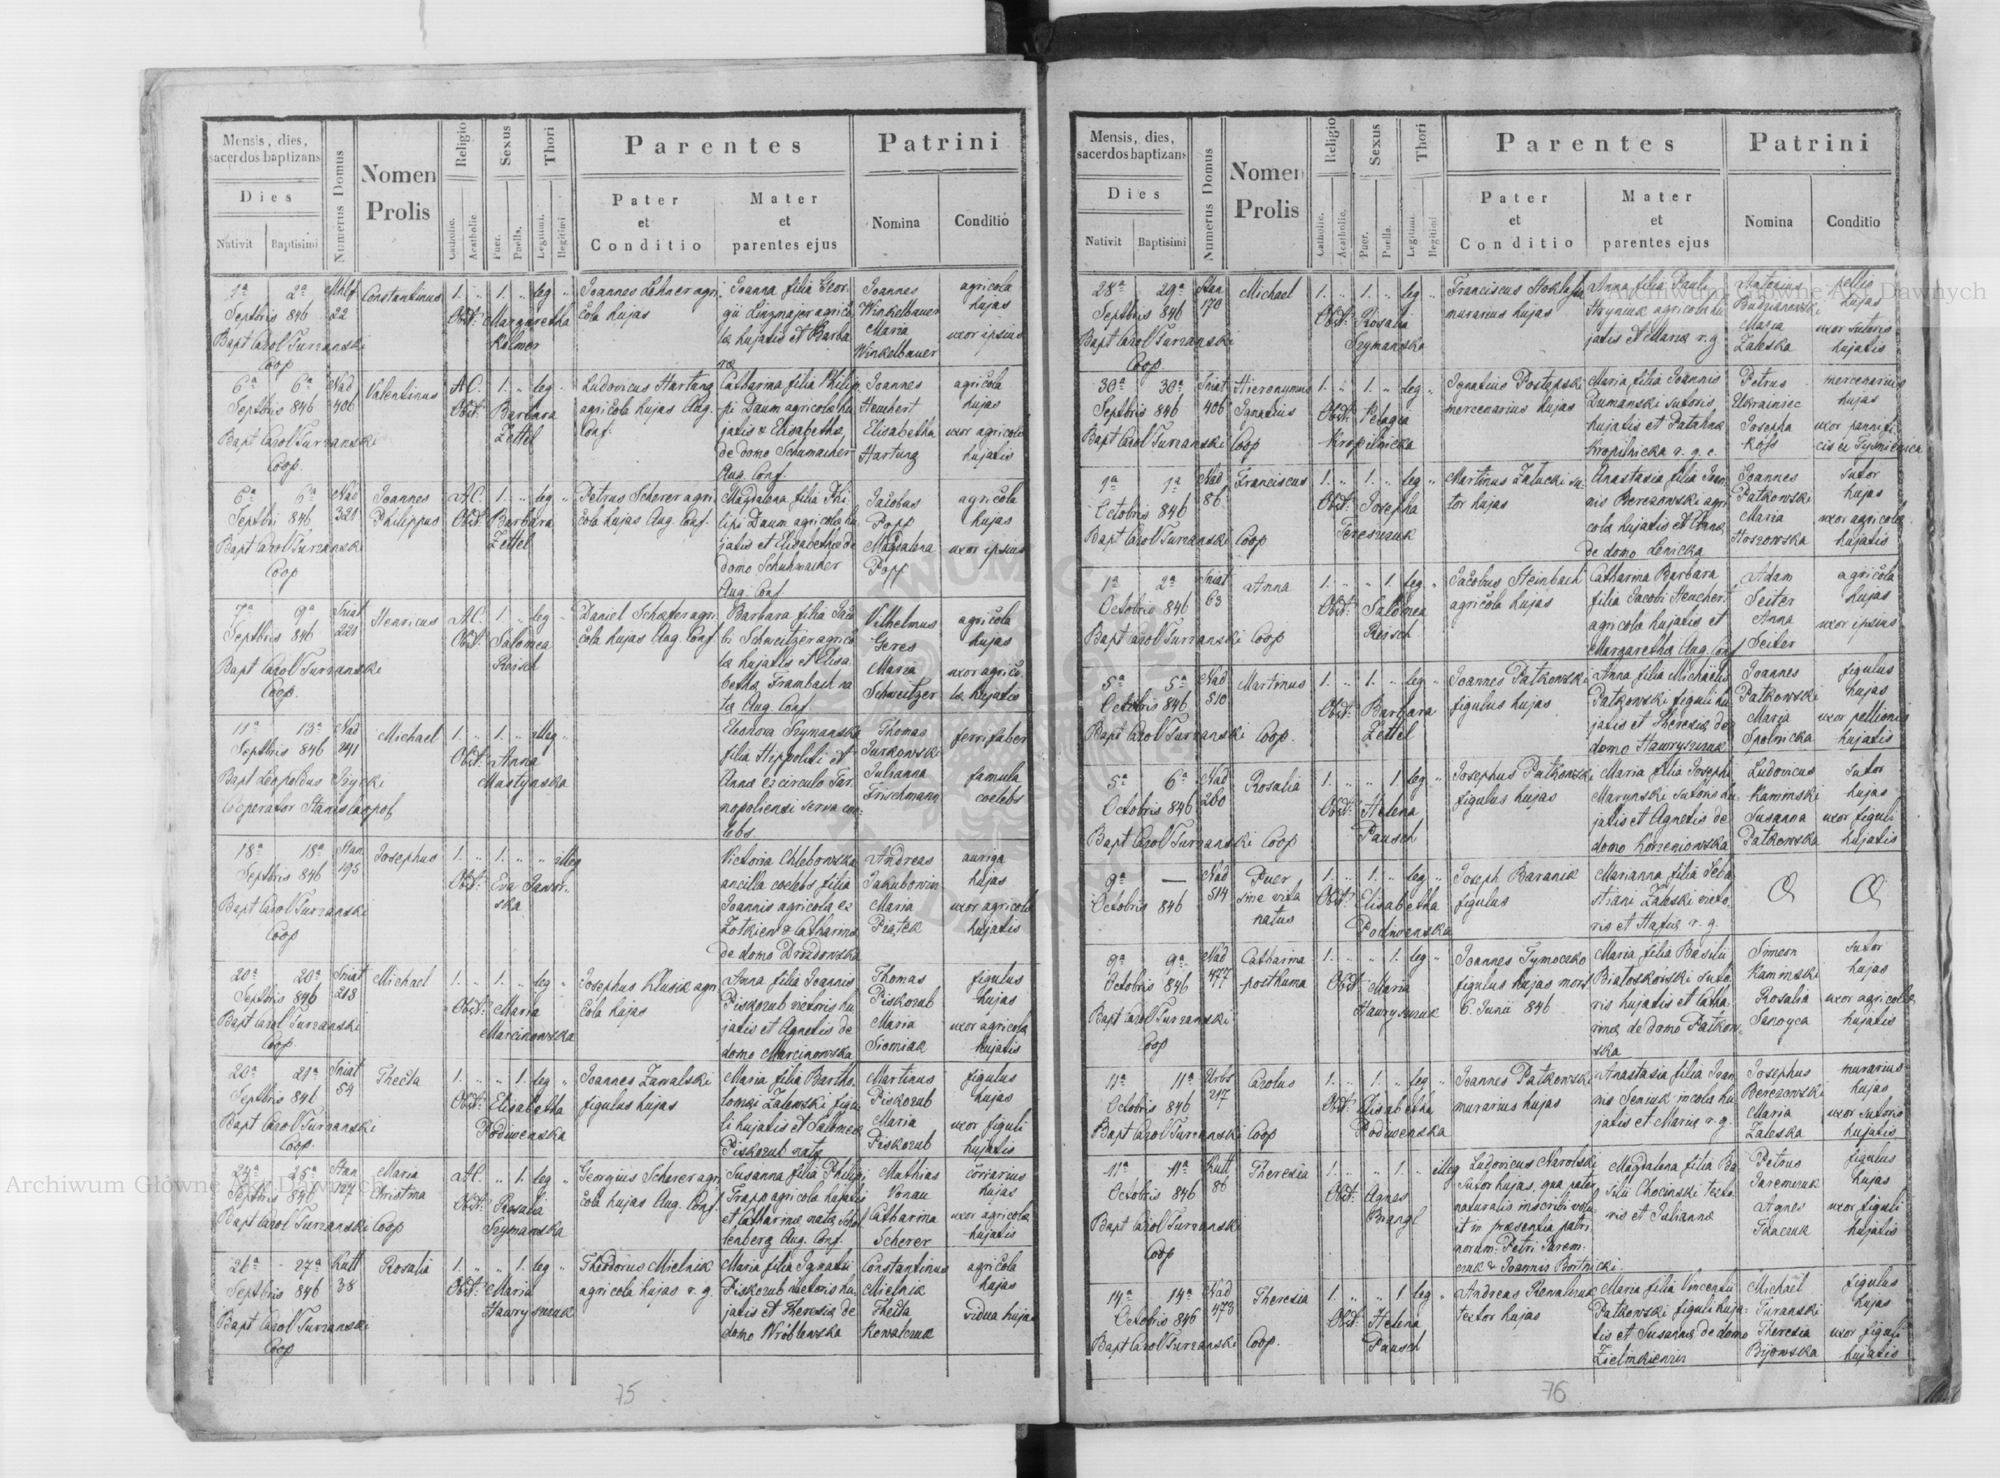 Mensis, dies,
sacerdos baptizans
Numerus Domus
Nomen
Prolis
Religio
Sexus
Thori
Parentes
Patrini
Dies
Nativit
Baptisimi
Catholic.
Acatholic
Puer.
Puella.
Legitimi.
Illegitimi
Pater
et
Conditio
Mater
et
parentes ejus
Nomina
Conditio
1a 2a 22 Constantinus 1. „ 1. „ leg „ Joannes Lehner agri Joanna filia Geor- Joannes agricola
Septbris 846 Obst: Margaretha cola hujas gii Lingmajer agrico Winkelbauer hujas
Bapt Carol Turzanski Kalmer læ hujatis et Barba Maria uxor ipsius
Coop ræ Winkelbauer
6a 6a Nad Valentinus A.C. 1. „ leg „ Ludovicus Hartung Catharina filia Philip Joannes agricola
Septbris 846 406 Obst: Barbara agricola hujas Aug. pi Daum agricolæ hu Heuchert hujas
Bapt Carol Turzanski Zettel Conf. jatis & Elisabetha Elisabetha uxor agricolæ
Coop. de domo Schumacher Hartung hujatis
Aug. Conf.
6a 6a Nad Joannes A.C. 1. „ leg „ Petrus Scherer agri Magdalena filia Phi Jacobus agricola
Septbri 846 321 Philippus Obst: Barbara cola hujas Aug. Conf. lipi Daum agricola hu Popp hujas
Bapt Carol Turzanski Zettel jatis et Elisabethæ de Magdalena uxor ipsius
Coop domo Schuhmacher Popp
Aug. Conf
7a 9a Sniat Henricus A.C. 1. „ leg „ Daniel Schæfer agri Barbara filia Jaco Vilhelmus agricola
Septbris 846 221 Obst: Salomea cola hujas Aug. Conf bi Schweitzer agrico Geres hujas
Bapt Carol Turzanski læ hujatis et Elisa Maria uxor agrico
Coop. betha Frambach na Schweitzer læ hujatis
ta Aug. Conf.
11a 13a Nad Michael 1. „ 1. „ illeg „ Eleonora Szymanska Thomas ferrifaber
Septbris 846 241 Obst: Anna filia Hippoliti et Jurkowski
Bapt Leopoldus Mastynska Anna ex circulo Tar Julianna famula
Cooperator nopoliensi serva coe Frischmann coelebs
lebs.
18a 18a Stan Josephus 1. „ 1. „ „ illeg Victoria Chlebowska Andreas auriga
Septbris 846 195 Obst: Eva Jawor- ancilla coelebs filia Jakubowicz hujas
Bapt Carol Turzanski ska Joannis agricola ex Maria uxor agricolæ
Coop Zotkiew & Catharina Piątek hujatis
de domo Drozdowska
20a 20a Sniat Michael 1. „ 1. „ leg „ Josephus Klusik agri Anna filia Joannis Thomas figulus
Septbris 846 218 Obst: Maria cola hujas Piskozub hu Piskozub hujas
Bapt Carol Turzanski Marcinowska jatis et Agnetis de Maria uxor agricola
Coop. domo Marcinowska Siomiak hujatis
20a 21a Sniat Thecla 1. „ „ 1. leg „ Joannes Zawalski Maria filia Bartho Martinus figulus
Septbris 846 54 Obst: Elisabetha figulus hujas lomæi Zalewski figu Piskozub hujas
Bapt Carol Turzanski Podiwenska li hujatis et Salomeæ Maria uxor figuli
Coop. Piskozub nata Piskozub hujatis
24a 25a Stan Maria A.C. „ 1. leg „ Georgius Scherer agri Susanna filia Philipi Mathias coriarius
Septbris 846 Christina Obst: Rosalia cola hujas Aug. Conf. Trapp agricola hujatis Vonau hujas
Bapt Carol Turzanski Coop Szymanska et Catharina nata Catharina uxor agricolæ
Aug. Conf. Scherer hujatis
26a 27a Kutt Rosalia 1. „ „ 1. leg „ Theodorius Mielnik Maria filia Ignatii Constantinus agricola
Septbris 846 38 Obst: Maria agricola hujas r. g. Piskozub hu Mielnik hujas
Bapt Carol Turzanski Hawryszczuk jatis et Theresia de Thecla vidua hujas
Coop domo Wróblewska Kowalczuk
75
Mensis, dies,
sacerdos baptizans
Numerus Domus
Nomen
Prolis
Religio
Sexus
Thori
Parentes
Patrini
Dies
Nativit
Baptisimi
Catholic.
Acatholic.
Puer.
Puella.
Legitimi
Illegitimi
Pater
et
Conditio
Mater
et
parentes ejus
Nomina
Conditio
28a 29a Stan Michael 1. „ 1. „ leg „ Franciscus Anna filia Pauli Antonius pellio
Septbris 846 170 Obst: Rosalia murarius hujas Hryniuk agricola hu hujas
Bapt Carol Turzanski Szymanska jatis et Maria r. g Maria uxor sutoris
Coop Zaleska hujatis
30a 30a Sniat Hieronymus 1. „ 1. „ leg „ Ignatius Postępski Maria filia Joannis Petrus mercenarius
Septbris 846 406 Ignatius Obst: Pelagia mercenarius hujas Dumanski sutoris Ukrainiec hujas
Bapt Carol Turzanski Coop Kropilnicka hujatis et Josepha uxor pannifi
Kropilnicka r. g. c. Koss cis ex Tysmienica
1a 1a Nad Franciscus 1. „ 1. „ leg „ Martinus Zalucki su Anastasia filia Joan Joannes sutor
Octobris 846 86 Obst: Josepha tor hujas nis Berezowski agri Patkowski hujas
Bapt Carol Turzanski Coop Tereszczuk cola hujatis et Anna Maria uxor agricola
de domo Lenicka Hoszowska hujatis
1a 2a Sniat Anna 1. „ „ 1. leg „ Jacobus Steinbach Catharina Barbara Adam agricola
Octobris 846 63 Obst: Salomea agricola hujas filia Jacobi Heucher Seiter hujas
Bapt Carol Turzanski Coop Reisch agricola hujatis et Anna uxor ipsius
Margaretha Aug. Conf Seiter
5a 5a Nad Martinus 1. „ 1. „ leg „ Joannes Patkowski Anna filia Michaelis Joannes figulus
Octobris 846 510 Obst: Barbara figulus hujas Patkowski figuli hu Patkowski hujas
Bapt Carol Turzanski Coop. Zettel jatis et Theresia de Maria uxor pellionis
domo Hawryszczuk Spolnicka hujatis
5a 6a Nad Rosalia 1. „ „ 1 leg „ Josephus Patkowski Maria filia Josephi Ludovicus sutor
Octobris 846 260 Obst: Helena figulus hujas Marynski sutoris hu Kaminski hujas
Bapt Carol Turzanski Coop Pausch jatis et Agnetis de Susanna uxor figuli
domo Korzeniowska Patkowska hujatis
9a — Nad Puer 1. „ 1. „ leg „ Joseph Baranik Marianna filia Seba
Octobris 846 514 sine vita Obst: Elisabetha figulus stiani Zaleski
natus Podiwanska ris et r. g.
9a 9a Nad Catharina 1. „ „ 1. leg „ Joannes Tymoczko Maria filia Basilii Simeon sutor
Octobris 846 477 posthuma Obst: Maria figulus hujas mort Bialoskorski suto Kaminski hujas
Bapt Carol Turzanski Hawryszczuk 6. Junii 846 ris hujatis et Catha Rosalia uxor agricolæ
Coop rina de domo Patkow Sanoyca hujatis
ska
11a 11a Urbs Carolus 1. „ 1. „ leg „ Joannes Patkowski Anastasia filia Joan Josephus murarius
Octobris 846 217 Obst: Elisabetha murarius hujas nis Seniuk incola hu Berezowski hujas
Bapt Carol Turzanski Coop Podiwenska jatis et Maria r. g. Maria uxor sutoris
Zaleska hujatis
11a 11a Kutt Theresia 1. „ „ 1. „ illeg Ludovicus Narolski Magdalena filia Ba Petrus figulus
Octobris 846 86 Obst: Agnes sutor hujas, qua pater silii Chocinski texto Jaremczuk hujas
Bapt Carol Turzanski Brangl naturalis inscribi volu ris et Julianna Agnes uxor figuli
Coop it in præsentia patri Tkaczuk hujatis
norum: Petri Jarem-
czuk & Joannis
14a 14a Nad Theresia 1. „ „ 1 leg „ Andreas Kowalczuk Maria filia Vincentii Michael figulus
Octobris 846 478 Obst: Helena textor hujas Patkowski figuli huja- Turanski hujas
Bapt Carol Turzanski Coop. Pausch tis et Susanna de domo Theresia uxor figuli
Zielinkiewicz Bijowska hujatis
76
Archiwum Główne Akt Dawnych
Archiwum Główne Akt Dawnych